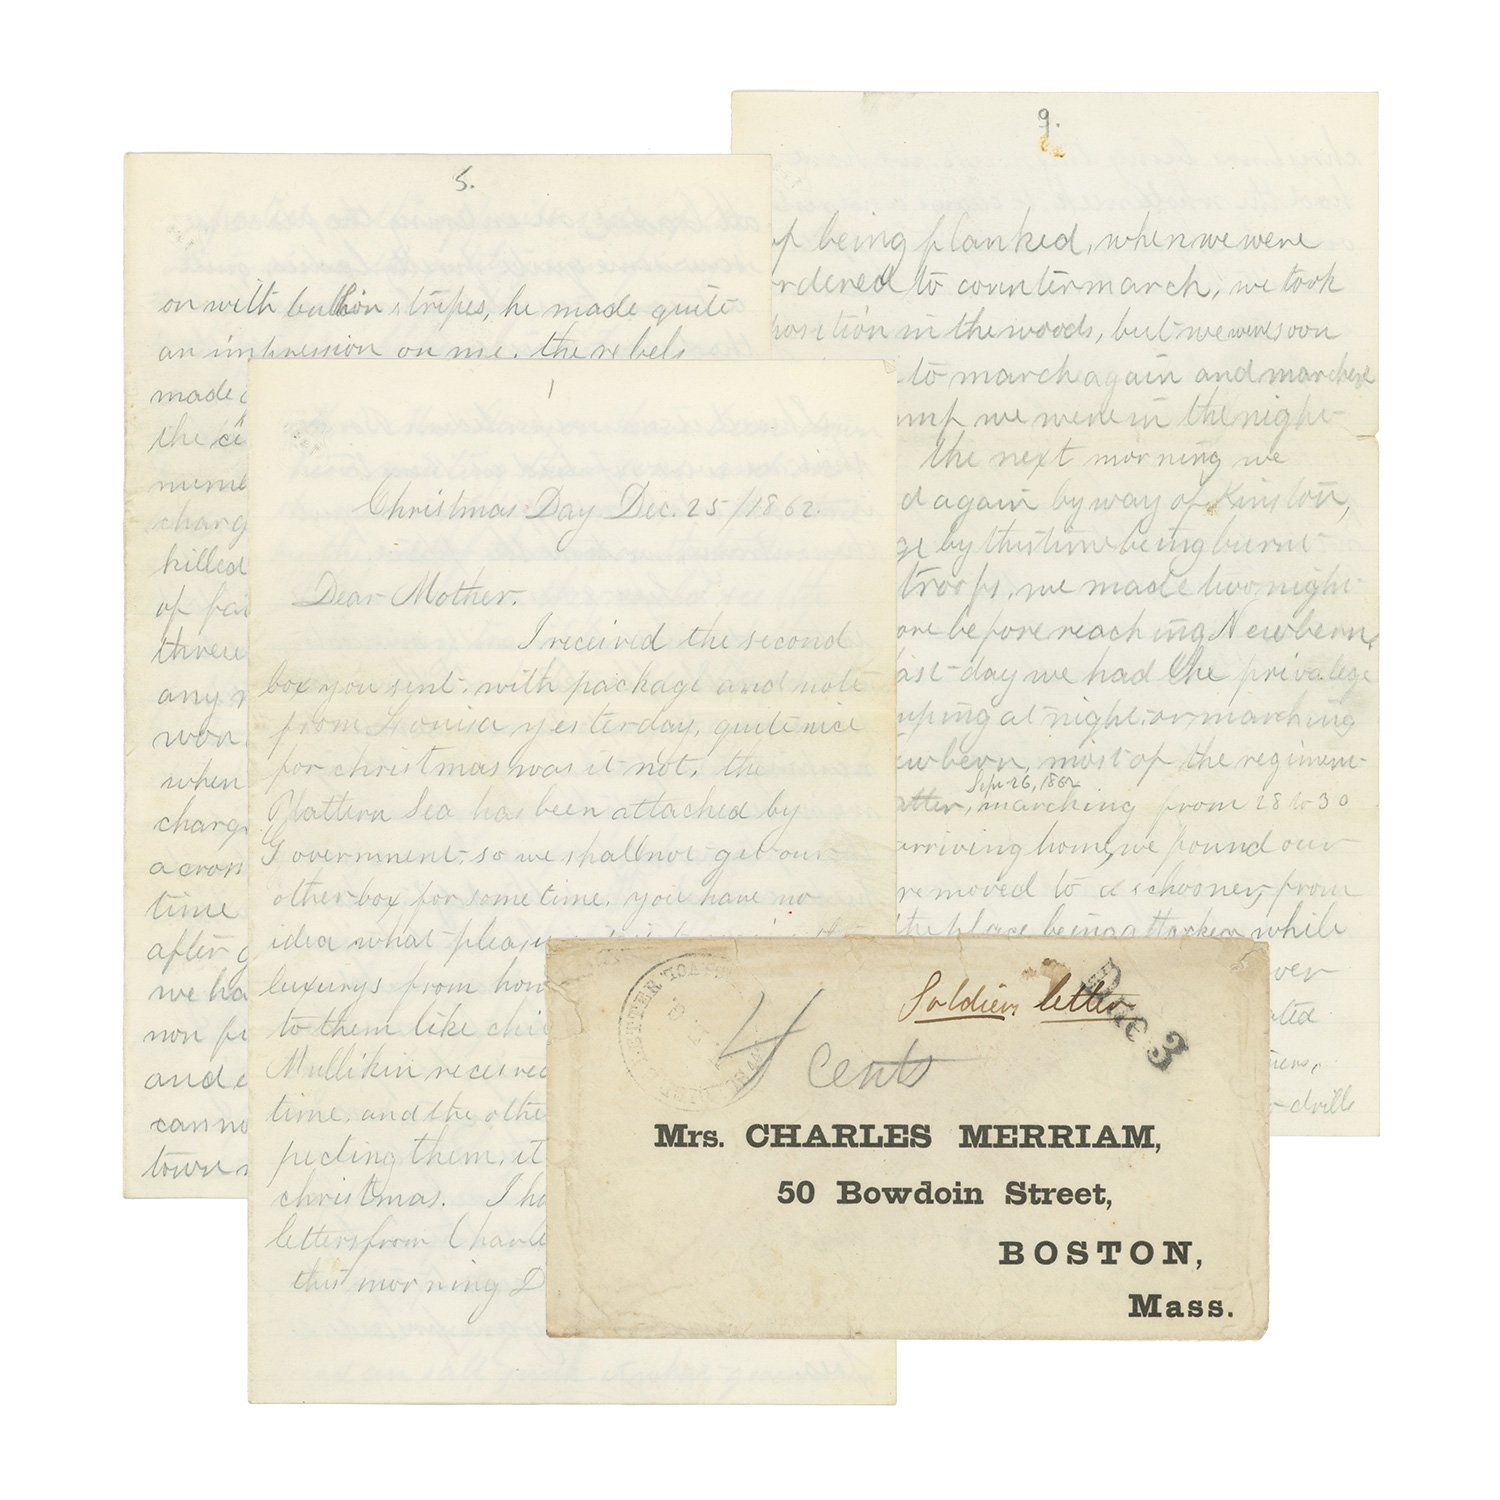 5.
on with bullion stripes, he made quite
an impression on me. the rebels
made
the
charg
killed
of fai
three
any
won
when
charg
across
time
after
we ha
non
and
canno
town
9.
of being flanked, when we were
rdered to countermarch; we took
position in the woods, but we were soon
to march again and marched
mp we were in the night
the next morning we
d again by way of Kinston,
ge by this time being burnt
troops, we made two night
ore before reaching Newbern,
ast day we had the privalege
mping at night or marching
ewbern, most of the regiment
Sept 26, 1862
atter, marching from 28 to 30
arriving home, we found our
removed to a schooner, from
the place being attacken while
ver
ated
iers,
drills
1
Christmas Day Dec. 25/1862.
Dear Mother.
I received the second
box you sent, with package and note
from Louisa yesterday, quite nice
for christmas was it not. the
Plattern Sea has been attached by
Government, so we shall not get our
other box for some time. you have no
idea what pleasu
luxurys from hom
to them like chi
Mullikin received
time, and the othe
pecting them, it
christmas. I ha
letters from Charl
this morning D
4
cents
Soldiers letter
Due 3
Mrs. CHARLES MERRIAM,
50 Bowdoin Street,
BOSTON,
Mass.